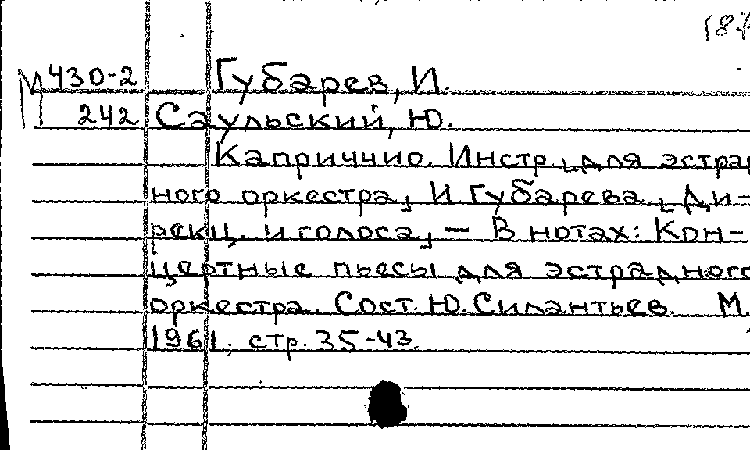 187
М 430-2 Губарев, И.
242 Саульский, Ю.
Каприччио. Инстр. [для эстрад
ного оркестра] И. Губарева. [Ди-
рекц. и голоса] – В нотах: Кон-
цертные пьесы для эстрадного
оркестра. Сост. Ю. Силантьев. М.,
1961, стр. 35-43.